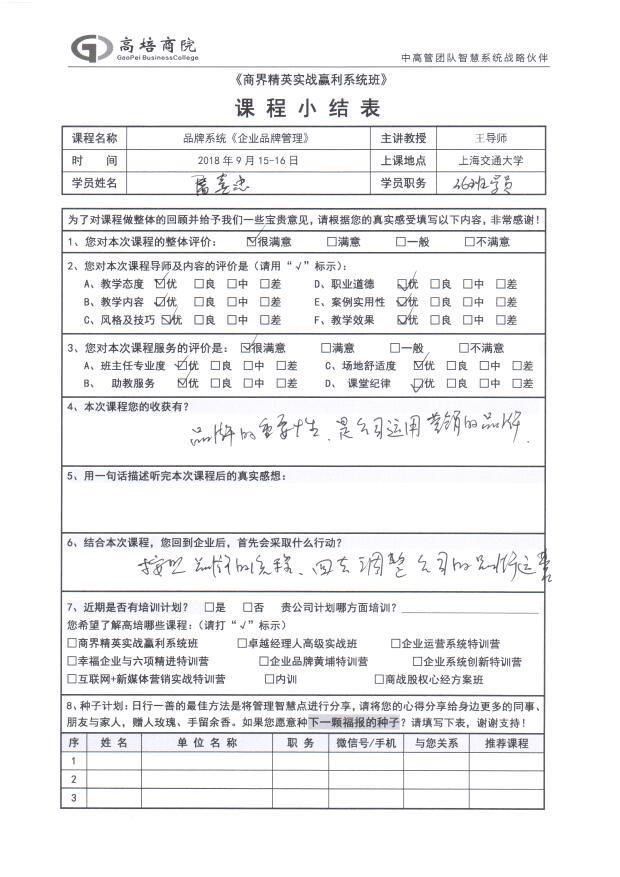 高培商院
GaoPei BusinessCollege
中高管团队智慧系统战略伙伴
《商界精英实战赢利系统班》
课程小结表
课程名称 品牌系统《企业品牌管理》 主讲教授 王导师
时 间 2018年9月15-16日 上课地点 上海交通大学
学员姓名 学员职务 36班学员
为了对课程做整体的回顾并给予我们一些宝贵意见,请根据您的真实感受填写以下内容,非常感谢!
1、您对本次课程的整体评价: ☑很满意 □满意 □一般 □不满意
2、您对本次课程导师及内容的评价是(请用“√”标示):
A、教学态度 ☑优 □良 □中 □差 D、职业道德 ☑优 □良 □中 □差
B、教学内容 ☑优 □良 □中 □差 E、案例实用性 ☑优 □良 □中 □差
C、风格及技巧 ☑优 □良 □中 □差 F、教学效果 ☑优 □良 □中 □差
3、您对本次课程服务的评价是: ☑很满意 □满意 □一般 □不满意
A、班主任专业度 ☑优 □良 □中 □差 C、场地舒适度 ☑优 □良 □中 □差
B、 助教服务 ☑优 □良 □中 □差 D、 课堂纪律 ☑优 □良 □中 □差
4、本次课程您的收获有?
品牌的重要性、是公司运用营销的品牌.
5、用一句话描述听完本次课程后的真实感想:
6、结合本次课程,您回到企业后,首先会采取什么行动?
按照品牌的流程、回去调整公司的品牌运营
7、近期是否有培训计划? □是 □否 贵公司计划哪方面培训?
您希望了解高培哪些课程:(请打“√”标示)
□商界精英实战赢利系统班 □卓越经理人高级实战班 □企业运营系统特训营
□幸福企业与六项精进特训营 □企业品牌黄埔特训营 □企业系统创新特训营
□互联网+新媒体营销实战特训营 □内训 □商战股权心经方案班
8、种子计划:日行一善的最佳方法是将管理智慧点进行分享,请将您的心得分享给身边更多的同事、
朋友与家人,赠人玫瑰、手留余香。如果您愿意种下一颗福报的种子?请填写下表,谢谢支持!
序 姓 名 单 位 名 称 职 务 微信号/手机 与您关系 推荐课程
1
2
3